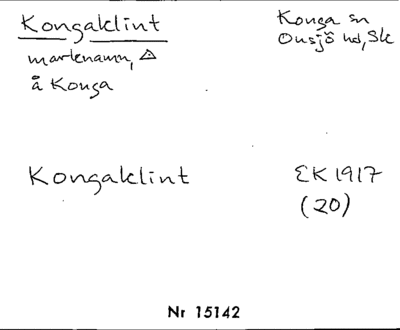 Kongaklint
Konga sn
Onsjö hd, Sk
marknamn, ⚠
å Konga
Kongaklint
EK 1917
(20)
Nr 15142